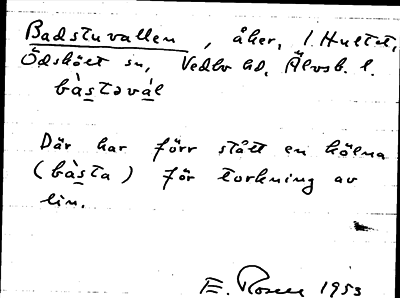 Badstuvallen, åker, l. Hultet,
Ödskölt sn, Vedbo hd, Älvsb. l.
bàstəvàl
Där har förr stått en kölna
(bàsta) för torkning av
lin.
E. Rosell 1953